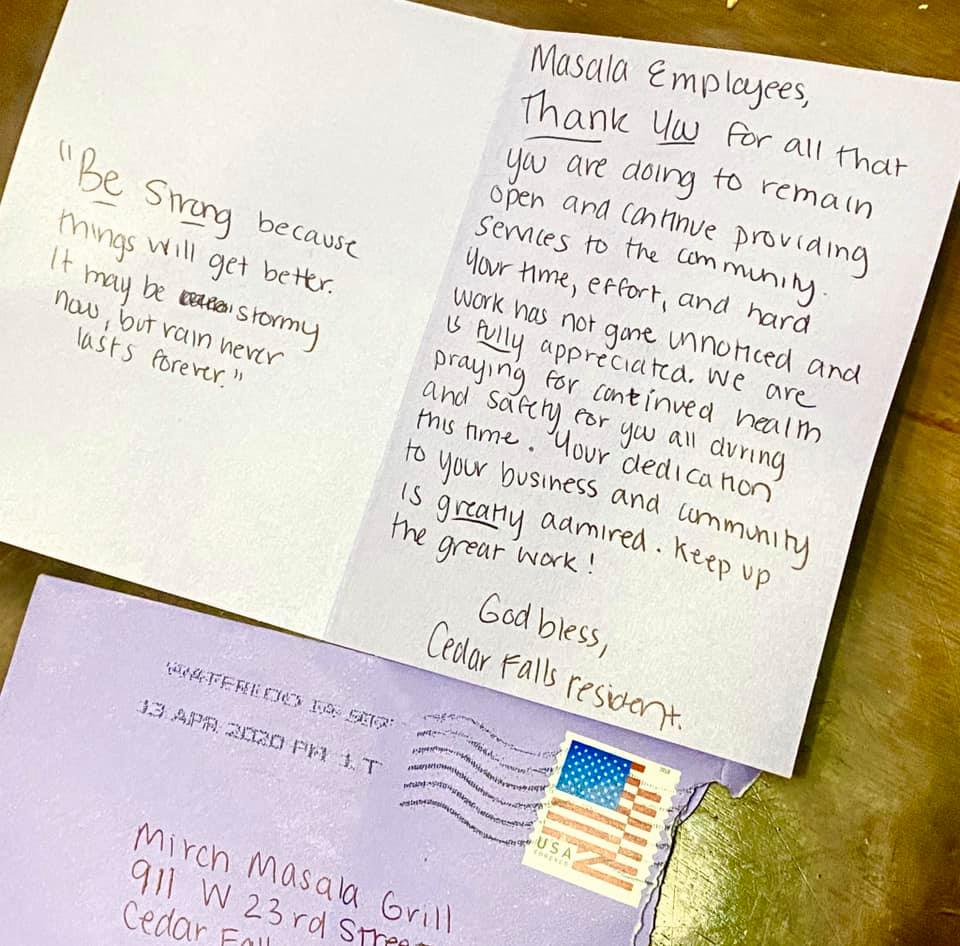 "Be Strong because
things will get better.
It may be stormy
now, but rain never
lasts forever."
Masala Employees,
Thank you for all that
you are doing to remain
open and continue providing
services to the community.
Your time, effort, and hard
work has not gone unnoticed and
is fully appreciated. We are
praying for continued health
and safety for you all during
this time. Your dedication
to your business and community
is greatly admired. Keep up
the great work!
God bless,
Cedar Falls resident.
WATERLOO IA
13 APR 2020 PM 1 T
USA
FOREVER
Mirch Masala Grill
911 W 23rd Street
Cedar Fall